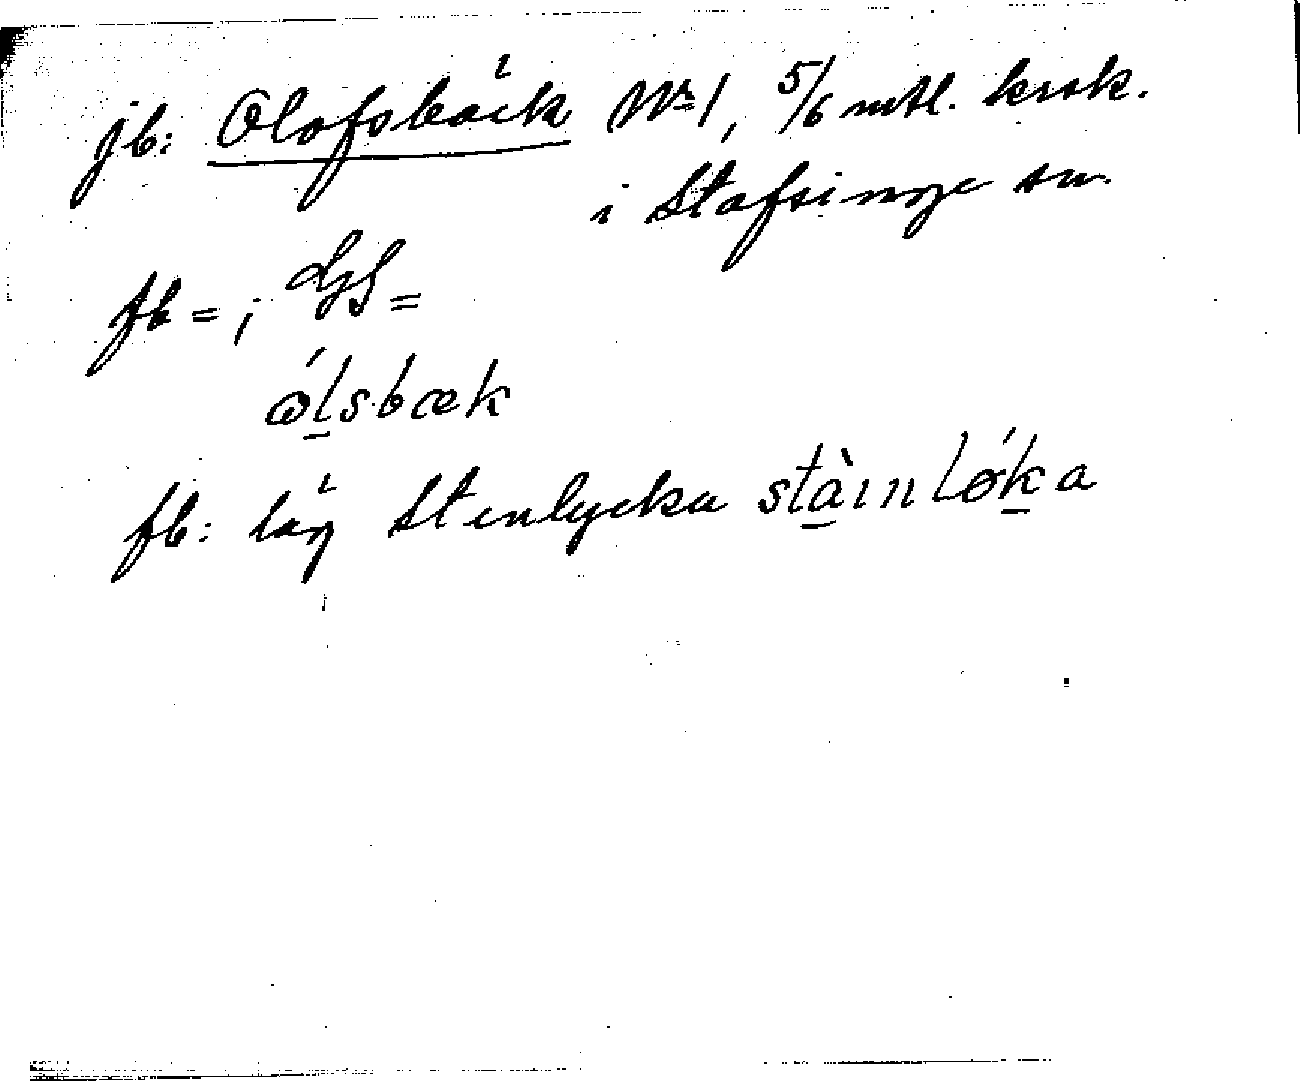 jb: Olofsbäck № 1, 5/6 mtl. krsk.
i Stafsinge sn.
fb = ; GS =
ώl̠sbæk
fb: läg Stenlycka stà̠ınlǿk̠a